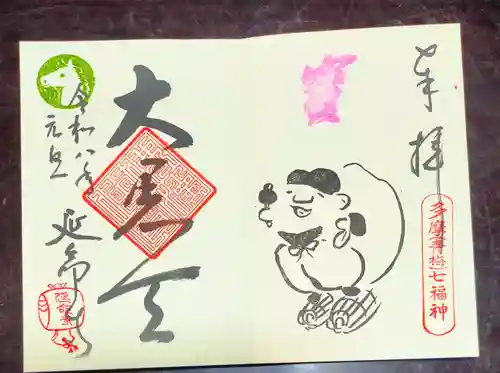 奉拝
多摩青梅七福神
大黒天
令和八年
元旦
延命寺